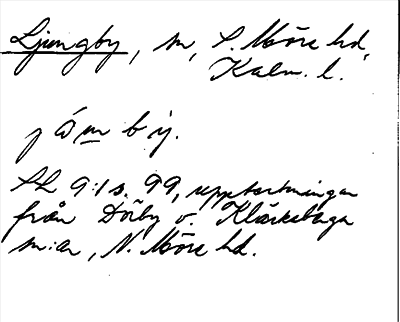 Ljungby, sn, S. Möre hd,
Kalm. l.
jám bẏ.
SL 9:1 s. 99, uppteckningar
från Dörby o. Kläckeberga
sn:ar, N. Möre hd.